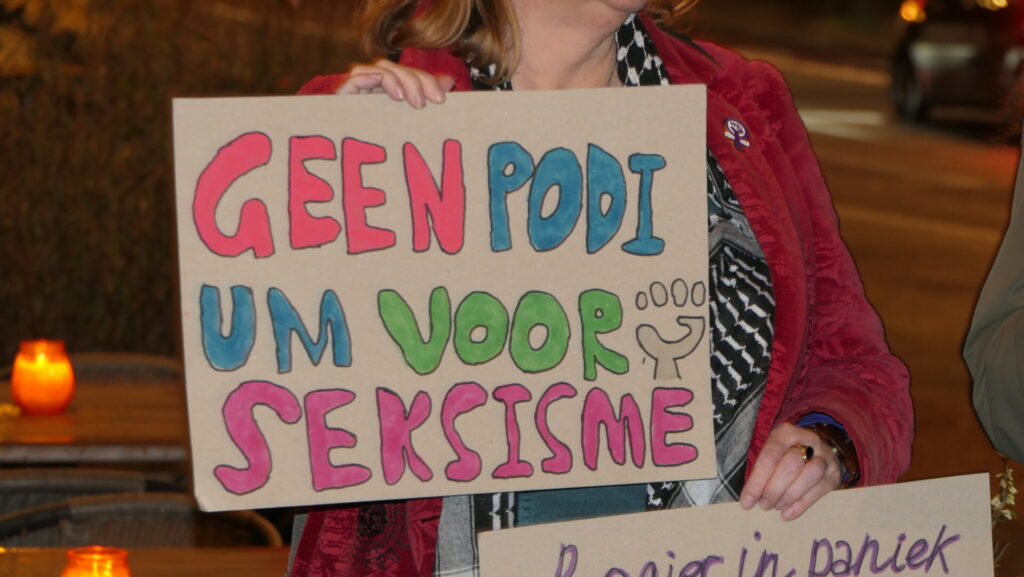 GEEN PODI
UM VOOR
SEKSISME
in paniek